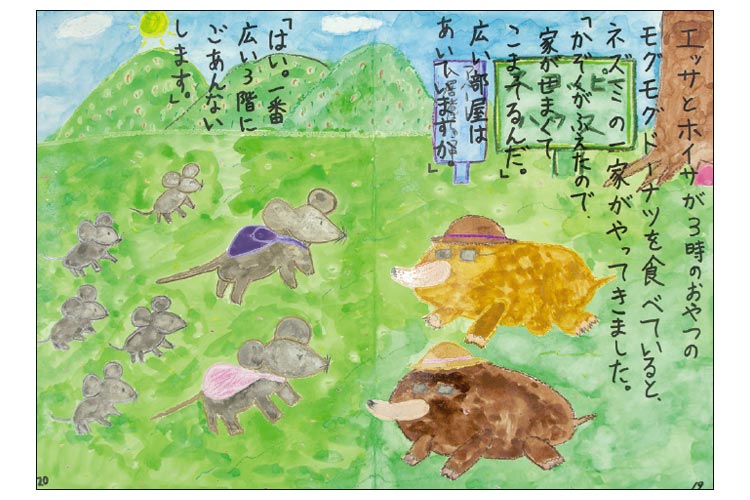 エッサとホイサが3時のおやつの
モグモグドーナツを食べていると、
ネズミの一家がやってきました。
「かぞくがふえたので、
家がせまくて
こまってるんだ。
広い部屋は
あいていますか。」
「はい。一番
広い3階に
ごあんない
します。」
20
19